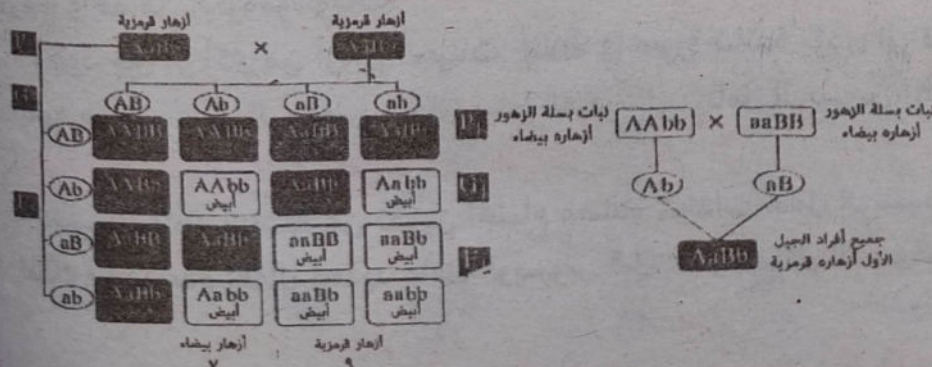 أزهار قرمزية
أزهار قرمزية
AaBb × AaBb
AB Ab aB ab
AB AABB AABb AaBB AaBb
Ab AABb AAbb أبيض AaBb Aabb أبيض
aB AaBB AaBb aaBB أبيض aaBb أبيض
ab AaBb Aabb أبيض aaBb أبيض aabb أبيض
أزهار قرمزية
٩
أزهار بيضاء
٧
نبات بسلة الزهور
أزهاره بيضاء
aaBB × AAbb
نبات بسلة الزهور
أزهاره بيضاء
Ab aB
AaBb
جميع أفراد الجيل
الأول أزهاره قرمزية